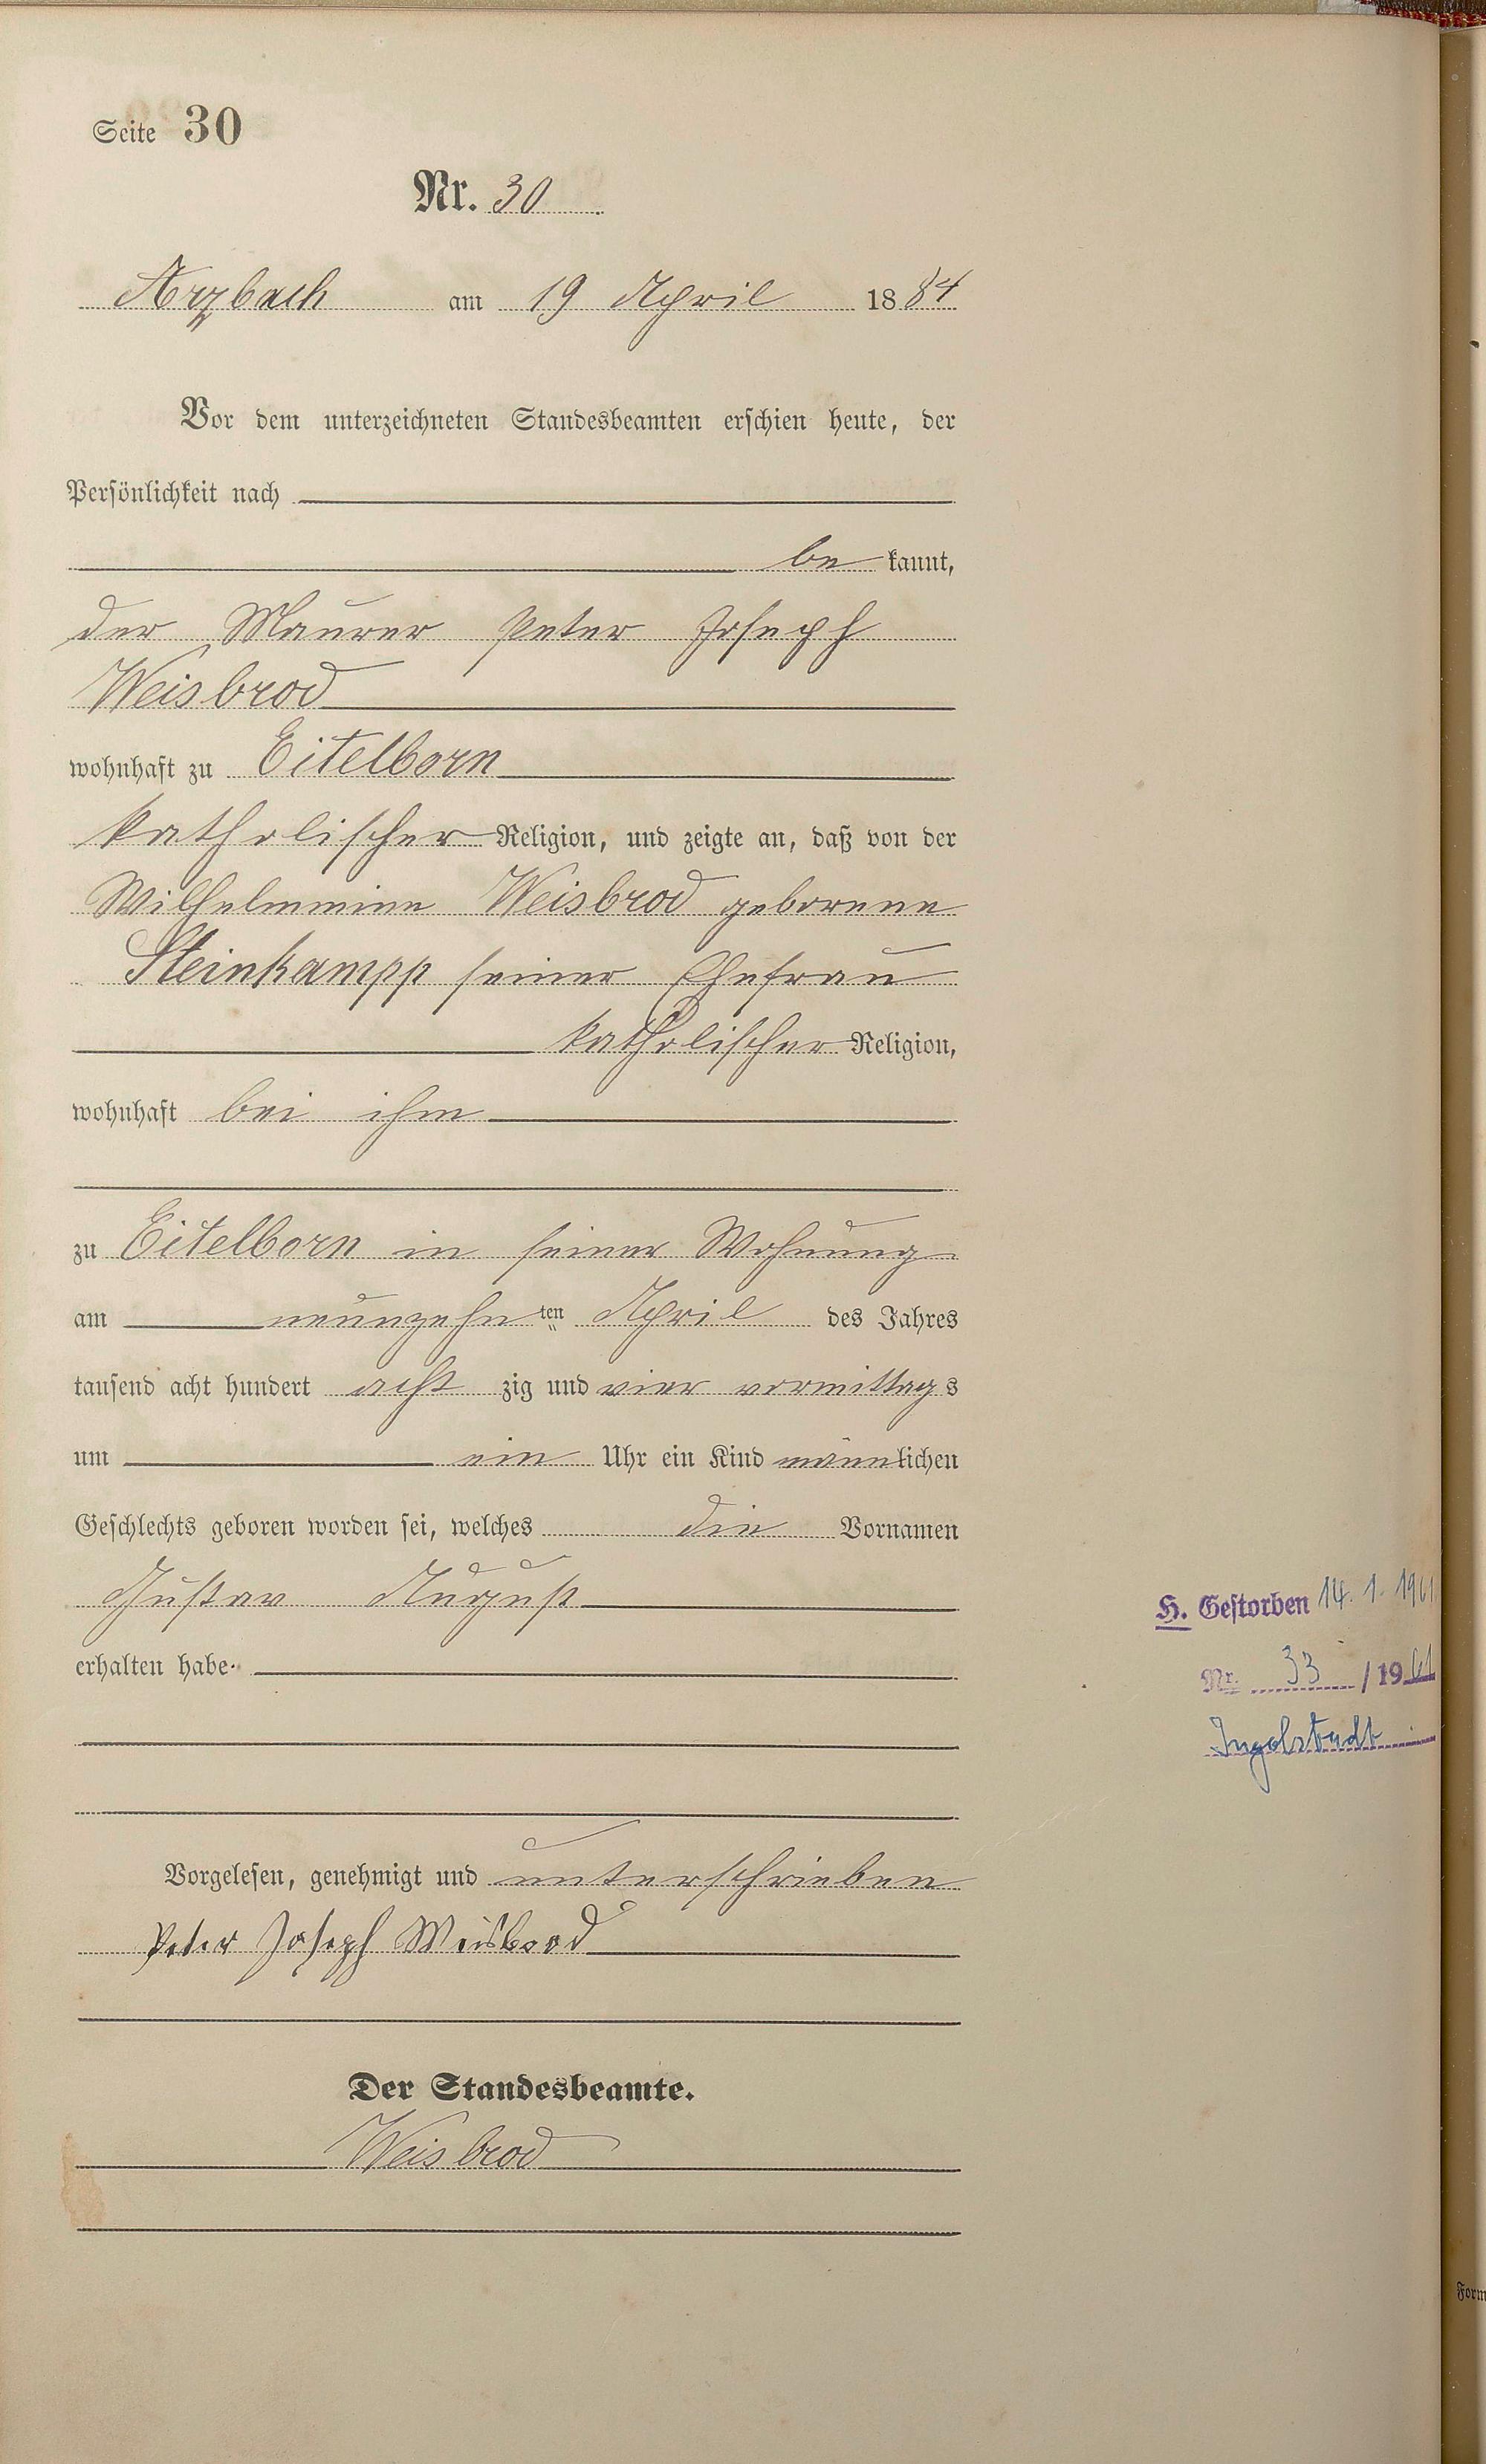 Seite 30
Nr. 30
Arzbach am 19 April 1884
Vor dem unterzeichneten Standesbeamten erschien heute, der
Persönlichkeit nach
be kannt,
der Maurer Peter Joseph
Weisbrod
wohnhaft zu Eitelborn
katholischer Religion, und zeigte an, daß von der
Wilhelmine Weisbrod geborene
Steinkampp seiner Ehefrau
katholischer Religion,
wohnhaft bei ihm
zu Eitelborn in seiner Wohnung
am neunzehn ten April des Jahres
tausend acht hundert acht zig und vier vormittags
um ein Uhr ein Kind männlichen
Geschlechts geboren worden sei, welches die Vornamen
Gustav August
erhalten habe.
H. Gestorben 14. 1. 1961
Nr. 33 / 1961
Ingolstadt
Vorgelesen, genehmigt und unterschrieben
Peter Joseph Weisbrod
Der Standesbeamte.
Weisbrod
Form